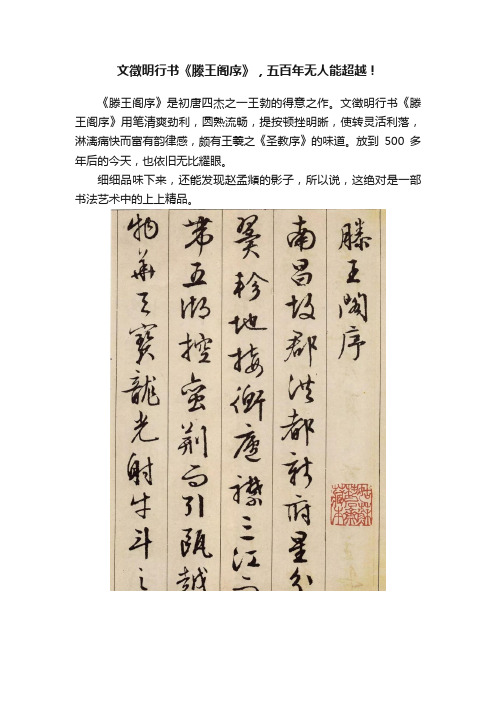 文徵明行书《滕王阁序》，五百年无人能超越！
《滕王阁序》是初唐四杰之一王勃的得意之作。文徵明行书《滕
王阁序》用笔清爽劲利，圆熟流畅，提按顿挫明晰，使转灵活利落，
淋漓痛快而富有韵律感，颇有王羲之《圣教序》的味道。放到 500 多
年后的今天，也依旧无比耀眼。
细细品味下来，还能发现赵孟頫的影子，所以说，这绝对是一部
书法艺术中的上上精品。
滕王閣序
南昌故郡洪都新府星分
翼軫地接衡廬襟三江而
帶五湖控蠻荆而引甌越
物華天寶龍光射牛斗之